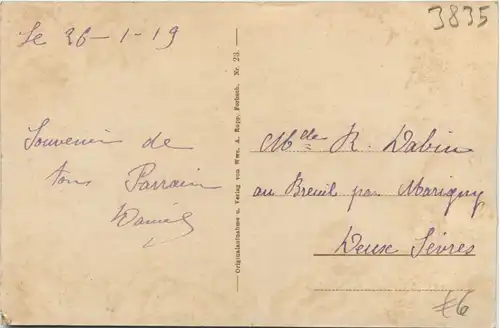 3835
Le 26-1-19
Souvenir de
ton Parrain
Daniel
Originalaufnahme u. Verlag von Wwe. A. Rupp, Forbach. Nr. 23.
Mlle R. Dabin
au Breuil par Marigny
Deux Sèvres
€6